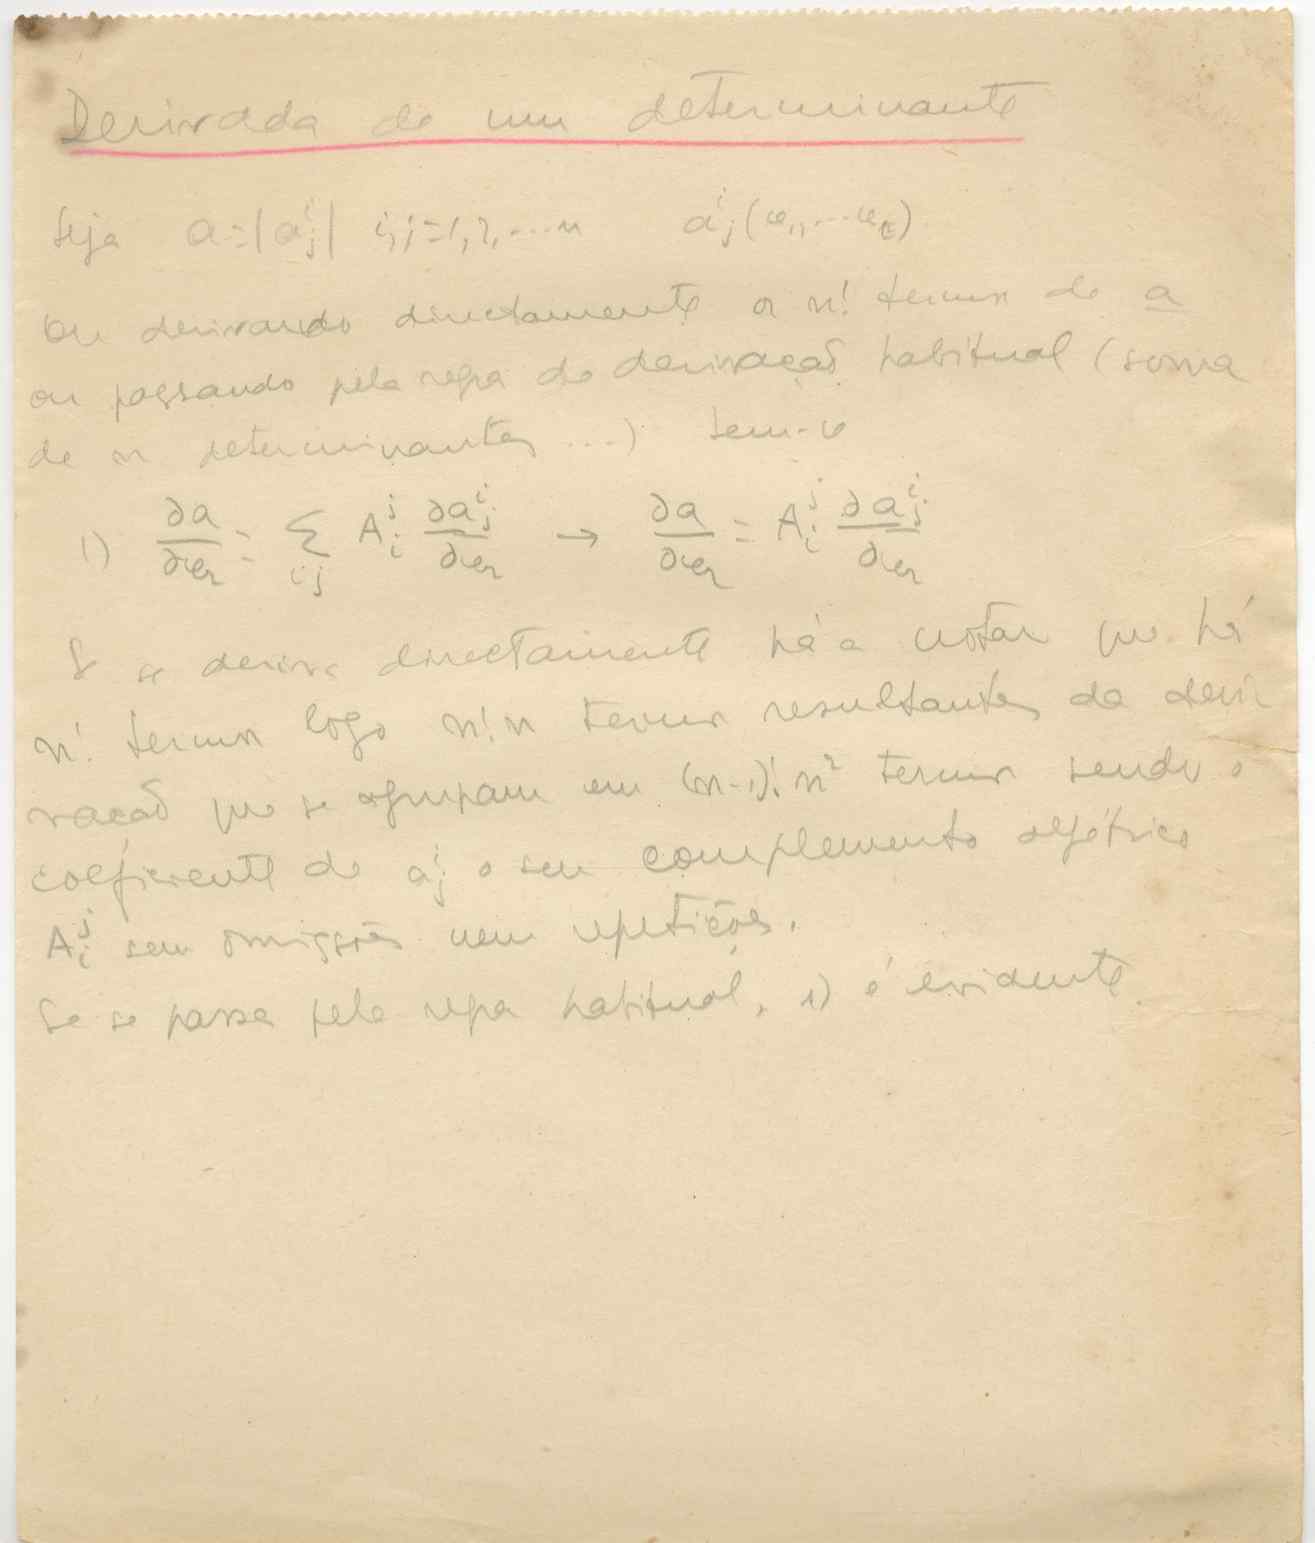 Derivada de um determinante
Seja a=|a^i_j| i,j=1,2,...n a^i_j(u_1,...u_t)
Ou derivando directamente os n! termos de a
ou passando pela regra de derivação habitual (soma
de n determinantes ...) tem-se
1) ∂a/∂u_r = Σ_{ij} A^j_i ∂a^i_j/∂u_r → ∂a/∂u_r = A^j_i ∂a^i_j/∂u_r
Se se deriva directamente há a notar que há
n! termos logo n!n termos resultantes da deri
vação que se agrupam em (n-1)! n² termos sendo o
coeficiente de a^i_j o seu complemento algébrico
A^j_i sem omissões nem repetições.
Se se passa pela regra habitual, 1) é evidente.